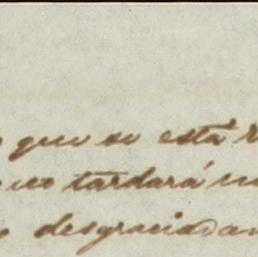 que se está
no tardará
desgraciadam